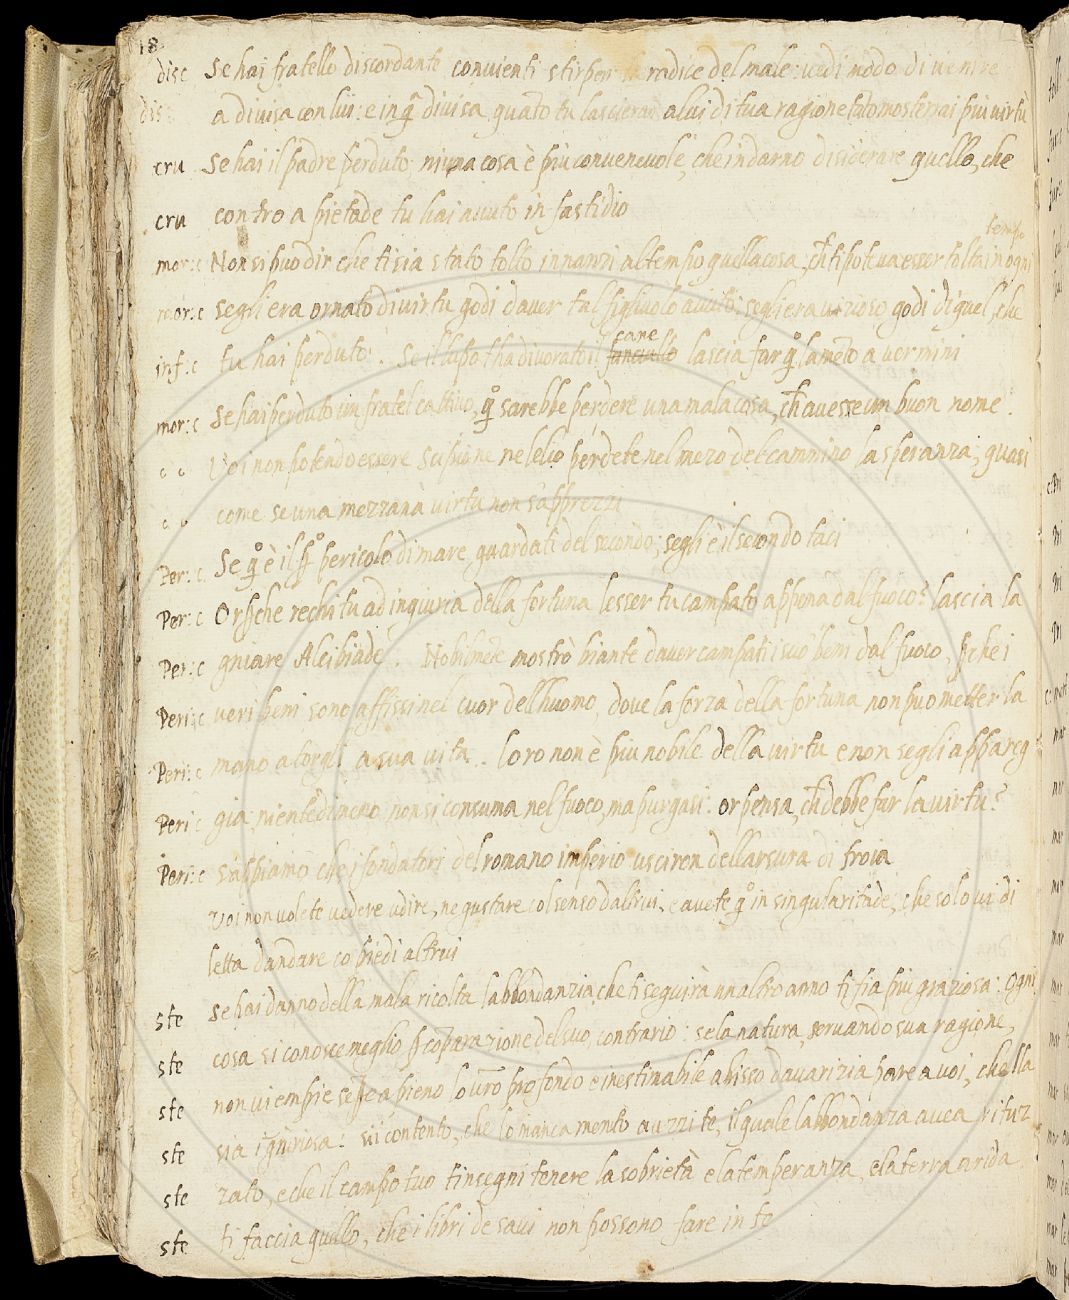 18
disc Se hai fratello discordante convienti stirper la radice del male: vedi modo di venire
dis a divisa con lui: e in q̃ divisa quãto tu lascierai a lui di tua ragione tãto mosterrai più virtù
cru Se hai il padre perduto, niuna cosa è più convenevole, che indarno disiderare quello, che
cru contro a pietade tu hai avuto in fastidio
mor:c Non si può dir che ti sia stato tolto innanzi al tempo quella cosa, ch̃ ti poteva esser tolta in ogni tempo
mor:c segli era ornato di virtu godi d'aver tal figliuolo avuto: segli era vizioso godi di quel, che
inf:c tu hai perduto. Se il lupo t'ha divorato il fanciullo cane lascia far q̃o lamẽto a vermini
mor:c Se hai perduto un fratel cattivo, q̃o sarebbe perdere una mala cosa, ch̃ avesse un buon nome.
c c Voi non potendo essere Scipione ne lelio perdete nel mezo del cammino la speranza, quasi
c c come se una mezzana virtu non s'apprezzi
Per:c. Se q̃o è il p̃o pericolo di mare, guardati del secondo, segli è il secondo taci
Per:c Or p̃che rechi tu ad ingiuria della fortuna lesser tu campato appena dal fuoco? lascia la
Per:c gniare Alcibiade. Nobilmẽte mostrò biante d'aver campati i suo' beni dal fuoco, p̃che i
Peri:c veri beni sono affissi nel cuor dell'huomo, dove la forza della fortuna non può metter la
Peri:c mano a torgli a sua vita. loro non è piu nobile della virtu e non segli appareg
Peri c gia, nientedimeno non si consuma nel fuoco, ma purgasi: or pensa, ch̃ debbe far la virtu?
Peri:c sappiamo che i fondatori del romano imperio usciren dell'arsura di troia
Voi non volete vedere udire, ne gustare col senso d'altrui, e avete q̃o in singularitade, che solo vi di
letta d'andare co piedi altrui
ste Se hai danno della mala ricolta l'abbondanzia che ti seguirà un altro anno ti fia più graziosa: Ogni
ste cosa si conosce meglio p̃ cõperazione del suo contrario: se la natura, servando sua ragione,
ste non vi empie sẽpre a pieno lo vr̃o profondo e inestimabile abisso d'avarizia pare a voi, chella
ste sia ĩgiuriosa: sii contento, che lo mancamento auzzi te, il quale labbondanza avea rifiuz
ste zato, e che il campo tuo tinsegni tenere la sobrietà e la temperanza, e la terra arida
ste ti faccia quello, che i libri de savi non possono fare in te